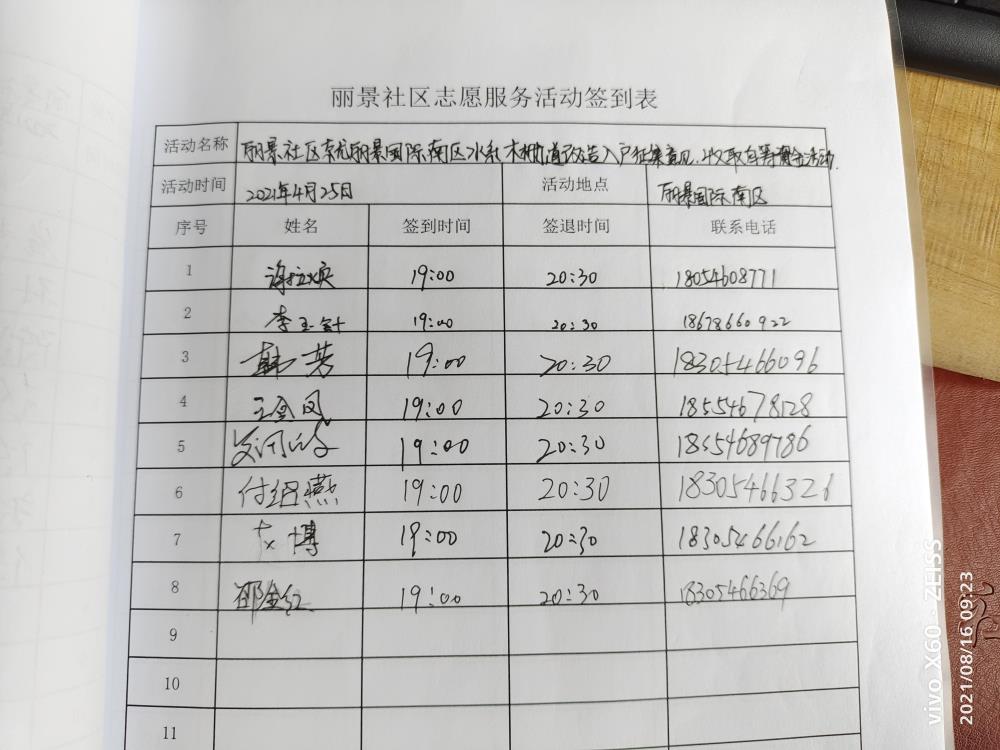 丽景社区志愿服务活动签到表
活动名称 丽景社区就丽景国际南区水系木栅道改造入户征集意见、收取自筹资金活动.
活动时间 2021年4月25日 活动地点 丽景国际南区
序号 姓名 签到时间 签退时间 联系电话
1 19:00 20:30 18054608771
2 李玉针 19:00 20:30 18678660922
3 韩芳 19:00 20:30 18305466096
4 王金凤 19:00 20:30 18554678128
5 19:00 20:30 18554689786
6 付纽燕 19:00 20:30 18305466326
7 博 19:00 20:30 18305466162
8 邵金红 19:00 20:30 18305466369
9
10
11
vivo X60 · ZEISS
2021/08/16 09:23